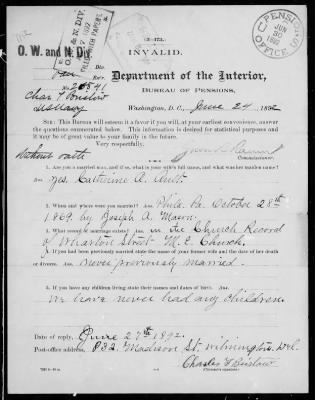 (3-173.)
O. W. and N. Div.
INVALID.
PENSION
OFFICE
JUN
30
1892
O. W. & N. DIV.
No. 26541
Department of the Interior,
Chas. F. Bristow
BUREAU OF PENSIONS,
US Navy
Washington, D. C., June 24, 1892
SIR: This Bureau will esteem it a favor if you will, at your earliest convenience, answer
the questions enumerated below. This information is desired for statistical purposes and
it may be of great value to your family in the future.
Very respectfully,
without oath
Commissioner.
1. Are you a married man, and if so, what is your wife's full name, and what was her maiden name?
ANS. Yes. Catherine A. Ault.
2. When and where were you married? ANS. Phila. Pa. October 28th
1869. by Joseph A. Mason.
3. What record of marriage exists? ANS. in the Church Record
of Wharton Street M. E. Church.
4. If you had been previously married state the name of your former wife and the date of her death
or divorce. ANS. never previously married.
5. If you have any children living state their names and dates of birth.
We have never had any children.
Date of reply, June 27th 1892.
Post-office address, 832 Madison St. Wilmington Del.
Charles F Bristow